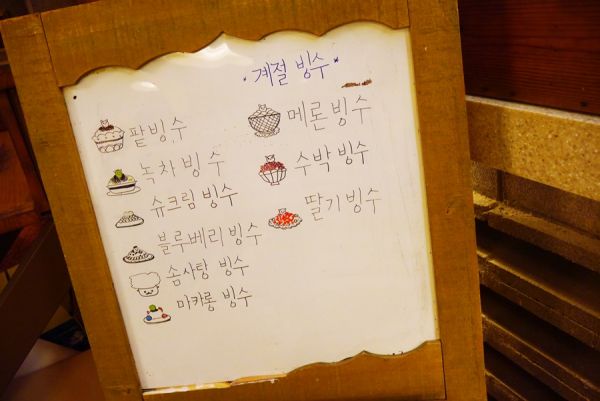 팥빙수
녹차빙수
슈크림빙수
블루베리빙수
솜사탕 빙수
마카롱 빙수
·계절 빙수·
메론빙수
수박빙수
딸기빙수